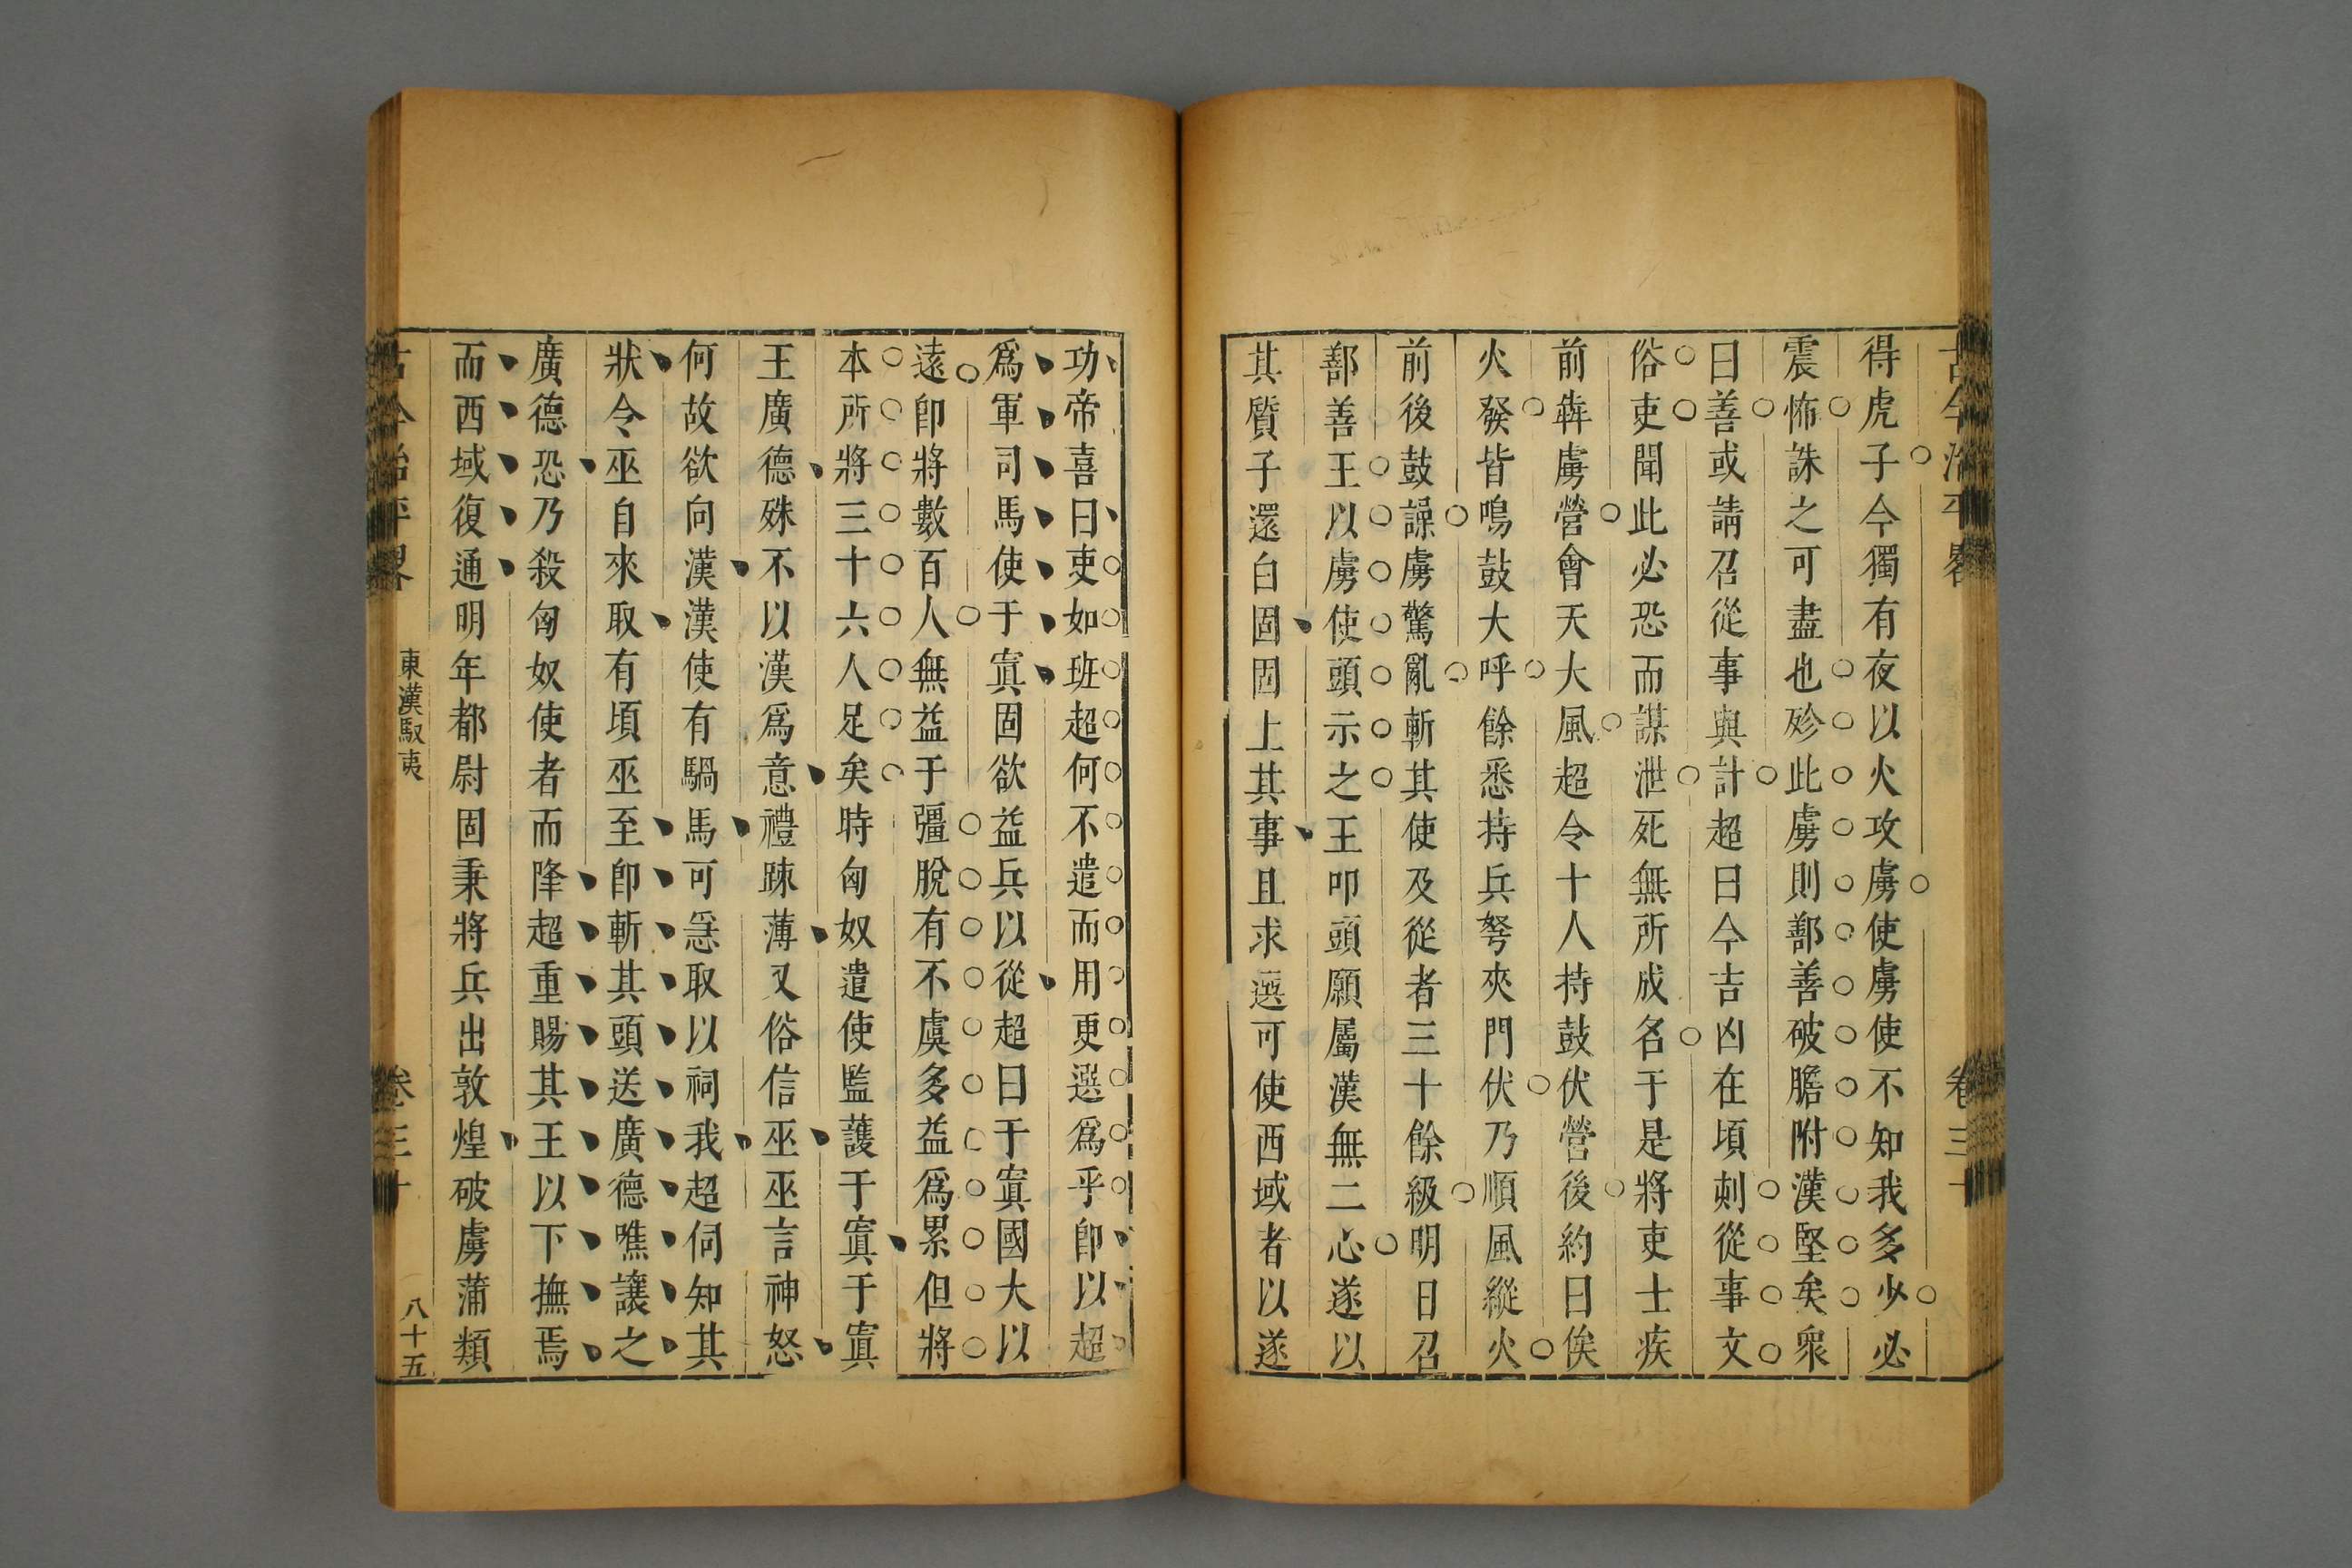 古今治平畧 卷三十
得虎子今獨有夜以火攻虜使虜使不知我多少必
震怖誅之可盡也殄此虜則鄯善破膽附漢堅矣衆
曰善或請召從事與計超曰今吉凶在頃刺從事文
俗吏聞此必恐而謀泄死無所成名于是將吏士疾
前犇虜營會天大風超令十人持鼓伏營後約曰俟
火發皆鳴鼓大呼餘悉持兵弩夾門伏乃順風縱火
前後鼓譟虜驚亂斬其使及從者三十餘級明日召
鄯善王以虜使頭示之王叩頭願屬漢無二心遂以
其質子還白固固上其事且求選可使西域者以遂
功帝喜曰吏如班超何不遣而用更選爲乎卽以超
爲軍司馬使于窴固欲益兵以從超曰于窴國大以
遠卽將數百人無益于彊脫有不虞多益爲累但將
本所將三十六人足矣時匈奴遣使監護于窴于窴
王廣德殊不以漢爲意禮踈薄又俗信巫巫言神怒
何故欲向漢漢使有騧馬可急取以祠我超伺知其
狀令巫自來取有頃巫至卽斬其頭送廣德噍讓之
廣德恐乃殺匈奴使者而降超重賜其王以下撫焉
而西域復通明年都尉固秉將兵出敦煌破虜蒲類
古今治平畧 東漢馭夷 卷三十 八十五